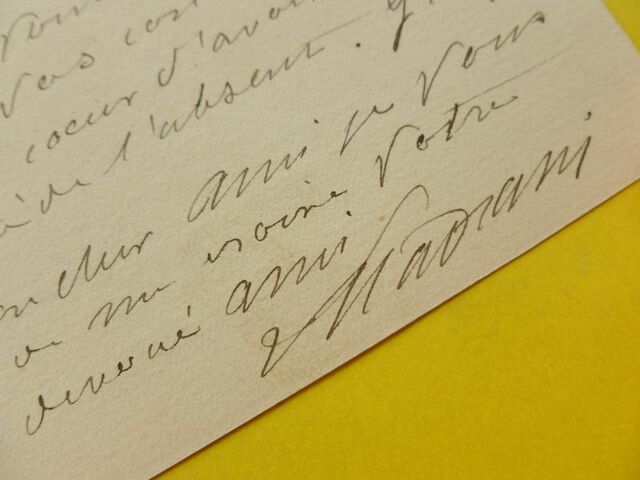 vous
pas con
coeur d'avoi
é de l'absent.
on cher ami je vous
de me croire votre
dévoué ami
Madrani